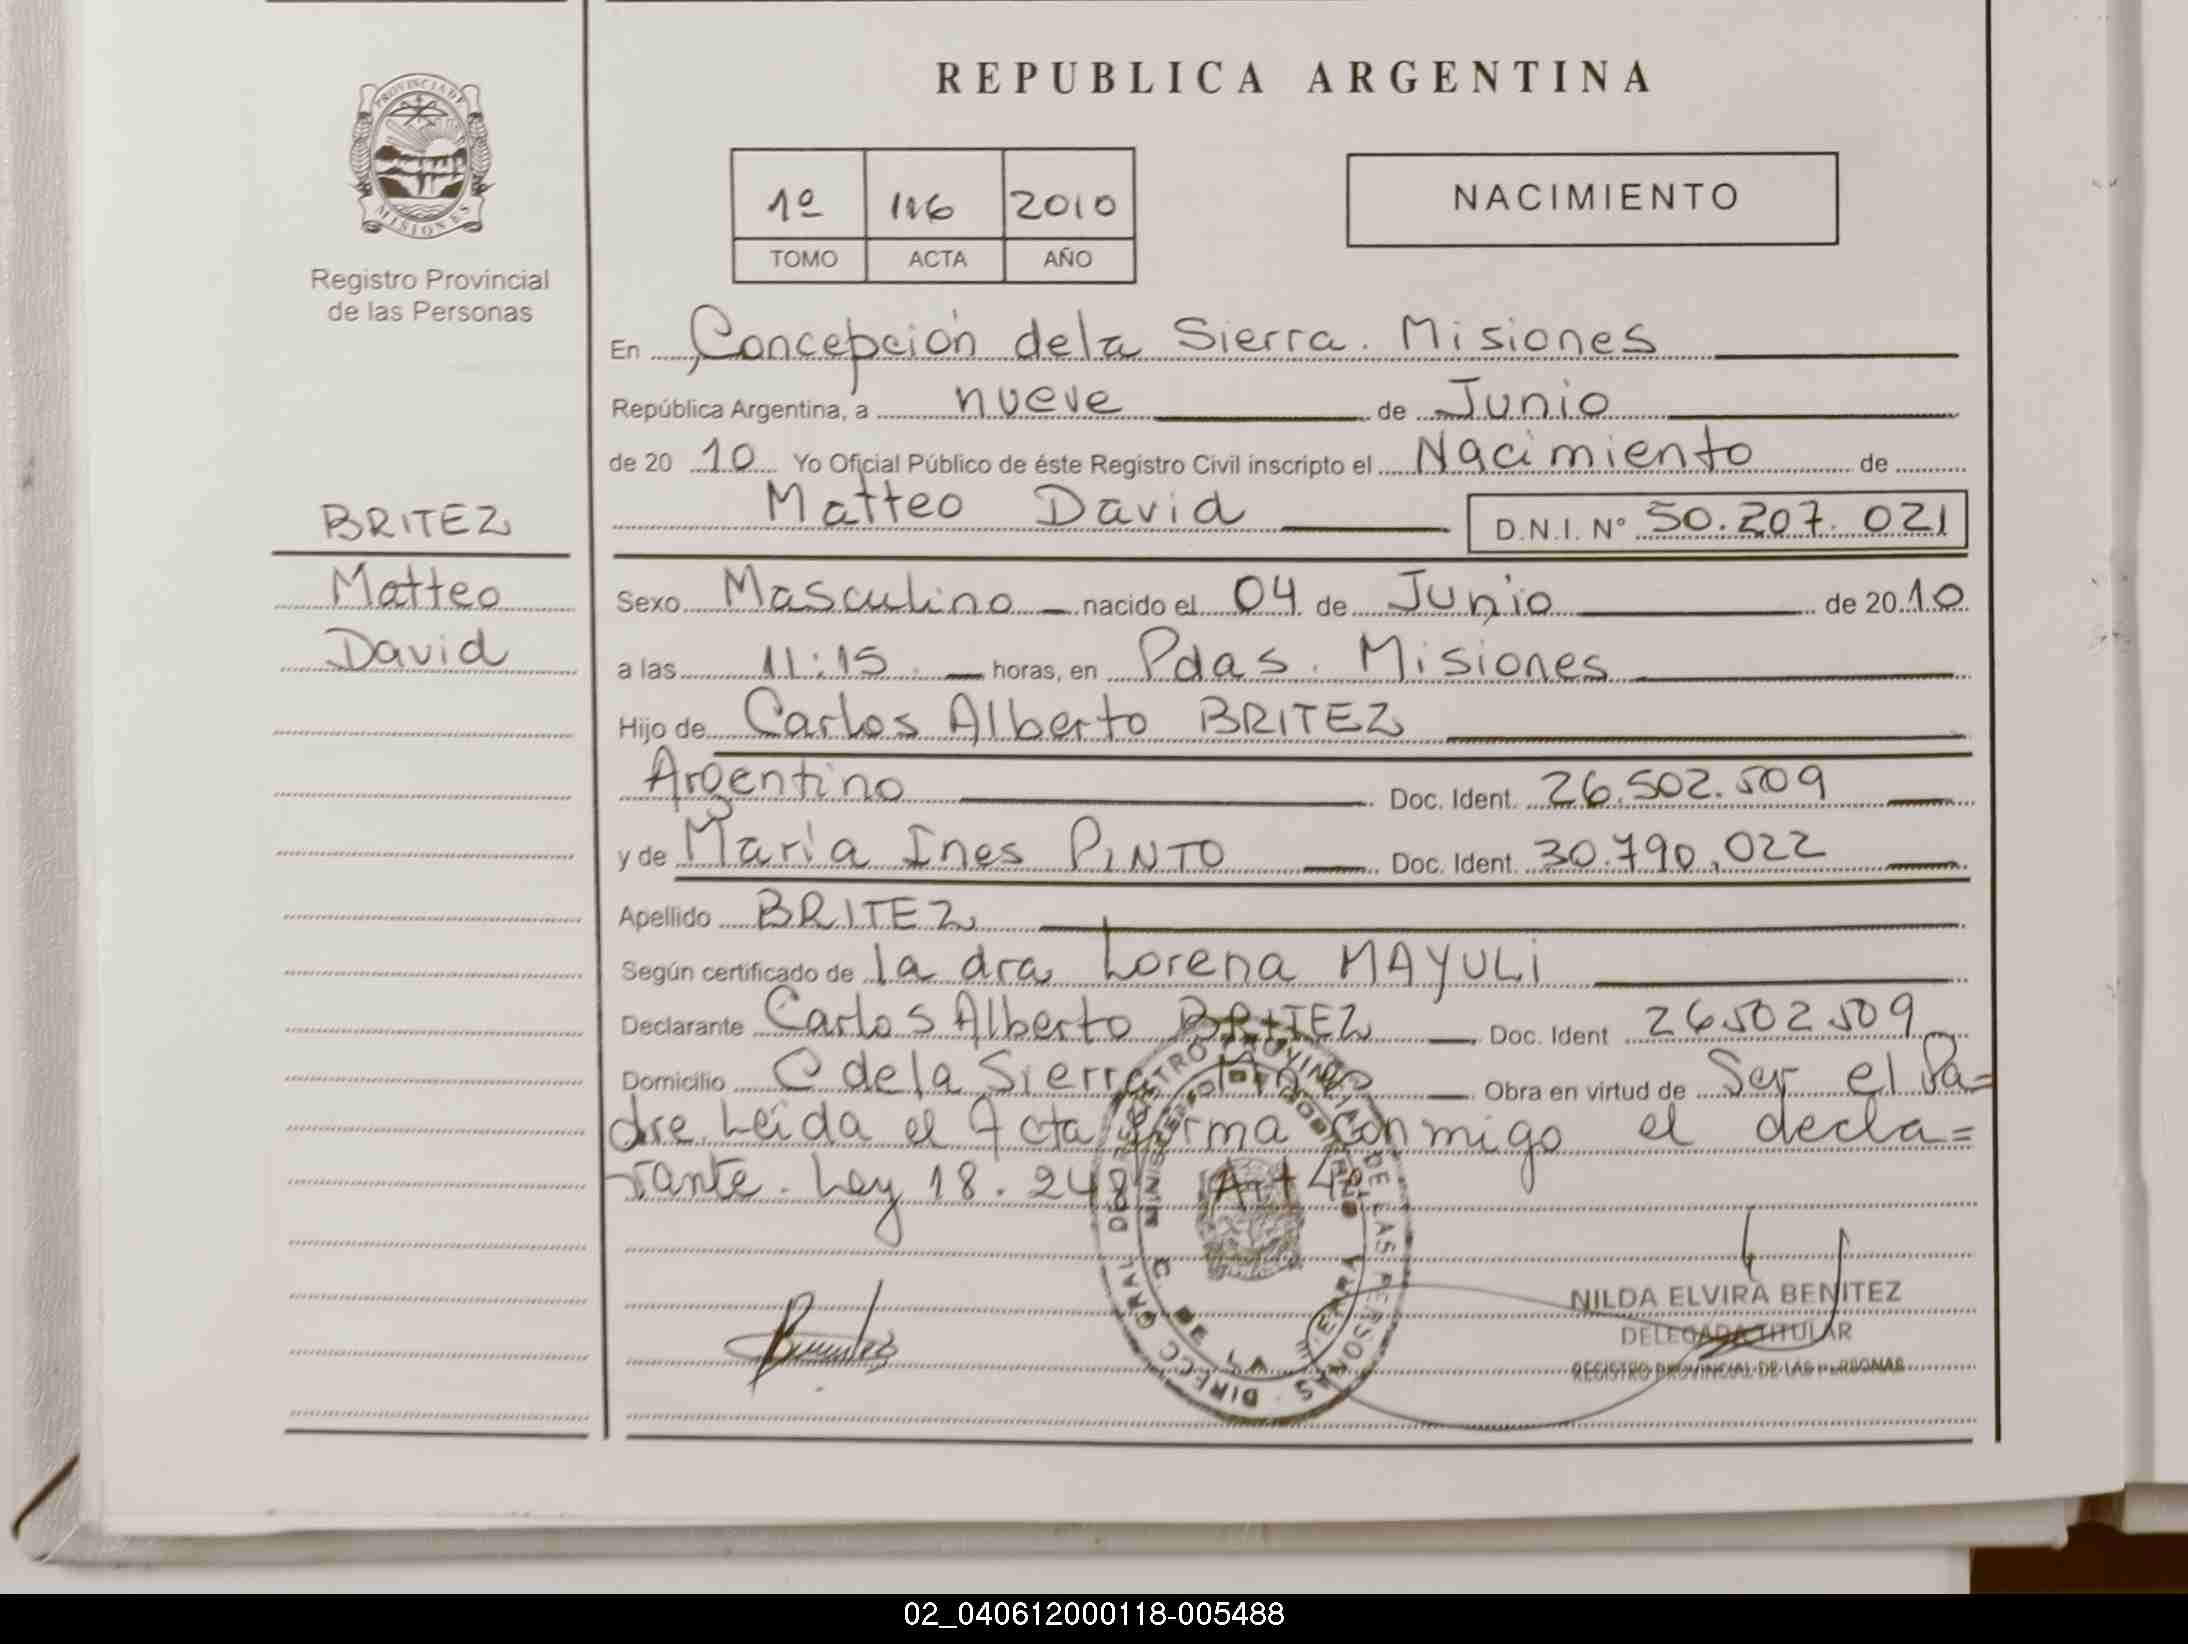 REPUBLICA ARGENTINA
PROVINCIA DE
MISIONES
Registro Provincial
de las Personas
1º 116 2010
TOMO ACTA AÑO
NACIMIENTO
En Concepción dela Sierra. Misiones
República Argentina, a nueve de Junio
de 20 10 Yo Oficial Público de éste Registro Civil inscripto el Nacimiento de
Matteo David D.N.I. Nº 50.207.021
BRITEZ
Matteo
David
Sexo Masculino nacido el 04 de Junio de 20 10
a las 11:15 horas, en Pdas. Misiones
Hijo de Carlos Alberto BRITEZ
Argentino Doc. Ident. 26.502.509
y de María Ines PINTO Doc. Ident. 30.790.022
Apellido BRITEZ
Según certificado de la dra Lorena MAYULI
Declarante Carlos Alberto BRITEZ Doc. Ident 26.502.509
Domicilio C dela Sierra Obra en virtud de Ser el Pa=
dre. Leida el Acta firma conmigo el decla=
rante. Ley 18.248 Art 4º
DIRECC GRAL DEL REGISTRO PROVINCIAL DE LAS PERSONAS
NILDA ELVIRA BENITEZ
DELEGADA TITULAR
REGISTRO PROVINCIAL DE LAS PERSONAS
02_040612000118-005488